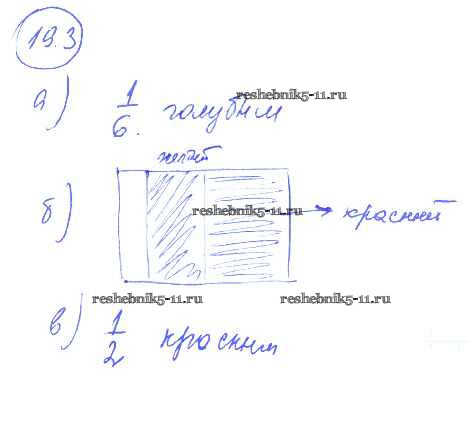 19.3
reshebnik5-11.ru
а) 1/6. голубым
желтый
б) reshebnik5-11.ru → красный
reshebnik5-11.ru reshebnik5-11.ru
в) 1/2 красным